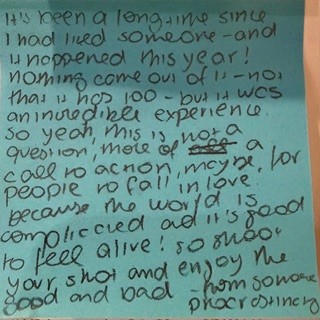 It's been a long time since
I had liked someone - and
it happened this year!
nothing came out of it - not
that it has too - but it was
an incredible experience.
so yeah, this is not a
question, more of a
call to action, maybe, for
people to fall in love.
because the world is
complicated ad it's good
to feel alive! so shoot
your shot and enjoy the
good and bad -from someone
procrastinating